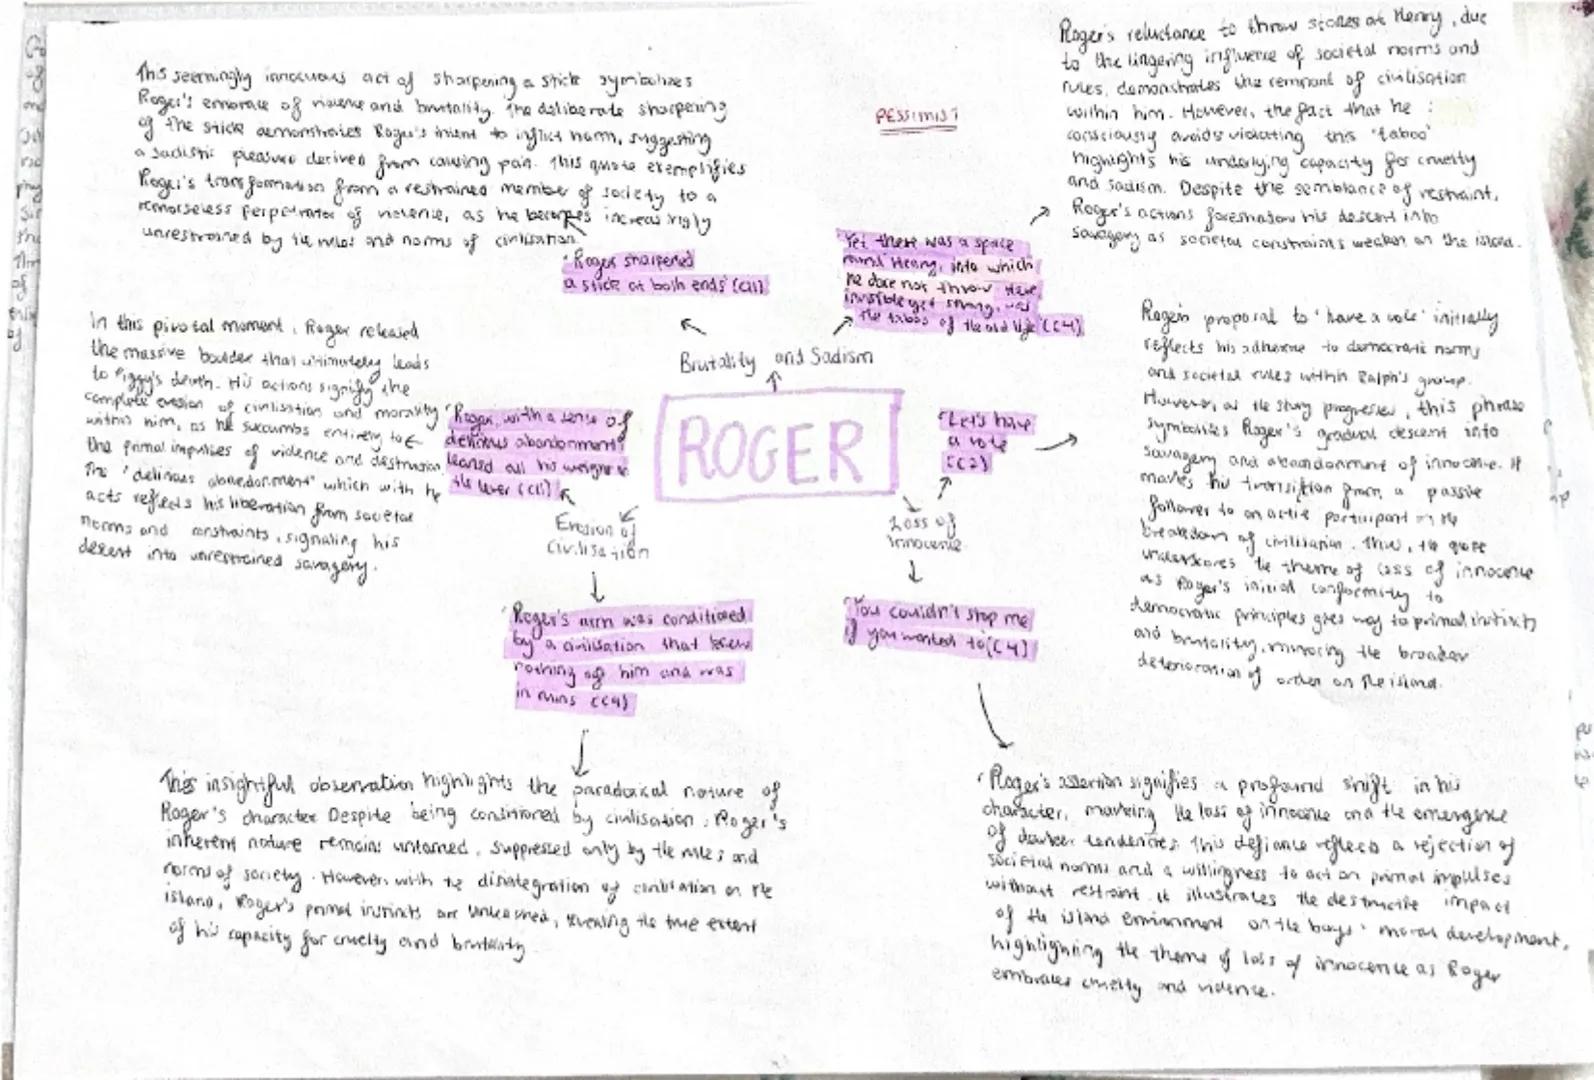 PESSIMIST
This seemingly innocuous act of sharpening a stick symbolizes
Roger's embrace of violence and brutality. The deliberate sharpening
of the stick demonstrates Roger's intent to inflict harm, suggesting
a sadistic pleasure derived from causing pain. This quote exemplifies
Roger's transformation from a restrained member of society to a
remorseless perpetrator of violence, as he becomes increasingly
unrestrained by the rules and norms of civilisation.
'Roger sharpened
a stick at both ends' (C11)
Roger's reluctance to throw stones at Henry, due
to the lingering influence of societal norms and
rules, demonstrates the remnant of civilisation
within him. However, the fact that he
consciously avoids violating this 'taboo'
highlights his underlying capacity for cruelty
and sadism. Despite the semblance of restraint,
Roger's actions foreshadow his descent into
savagery as societal constraints weaken on the island.
'Yet there was a space
round Henry, into which
he dare not throw. Here
invisible yet strong, was
the taboo of the old life' (C4)
Brutality and Sadism
ROGER
In this pivotal moment, Roger released
the massive boulder that ultimately leads
to Piggy's death. His actions signify the
complete erosion of civilisation and morality
within him, as he succumbs entirely to
the primal impulses of violence and destruction.
The 'delirious abandonment' which with he
acts reflects his liberation from societal
norms and constraints, signaling his
descent into unrestrained savagery.
'Roger, with a sense of
delirious abandonment,
leaned all his weight on
the lever' (C11)
Erosion of
Civilisation
'Roger's arm was conditioned
by a civilisation that knew
nothing of him and was
in ruins (C4)
This insightful observation highlights the paradoxical nature of
Roger's character. Despite being conditioned by civilisation, Roger's
inherent nature remains untamed, suppressed only by the rules and
norms of society. However, with the disintegration of civilisation on the
island, Roger's primal instincts are unleashed, revealing the true extent
of his capacity for cruelty and brutality.
'Let's have
a vote'
(C2)
Loss of
innocence
Roger's proposal to 'have a vote' initially
reflects his adherence to democratic norms
and societal rules within Ralph's group.
However, as the story progresses, this phrase
symbolises Roger's gradual descent into
savagery and abandonment of innocence. It
marks his transition from a passive
follower to an active participant in the
breakdown of civilisation. Thus, the quote
underscores the theme of loss of innocence
as Roger's initial conformity to
democratic principles gives way to primal instincts
and brutality, mirroring the broader
deterioration of order on the island.
'You couldn't stop me
if you wanted to' (C4)
'Roger's assertion signifies a profound shift in his
character, marking the loss of innocence and the emergence
of darker tendencies. This defiance reflects a rejection of
societal norms and a willingness to act on primal impulses
without restraint. It illustrates the destructive impact
of the island environment on the boys' moral development,
highlighting the theme of loss of innocence as Roger
embraces cruelty and violence.